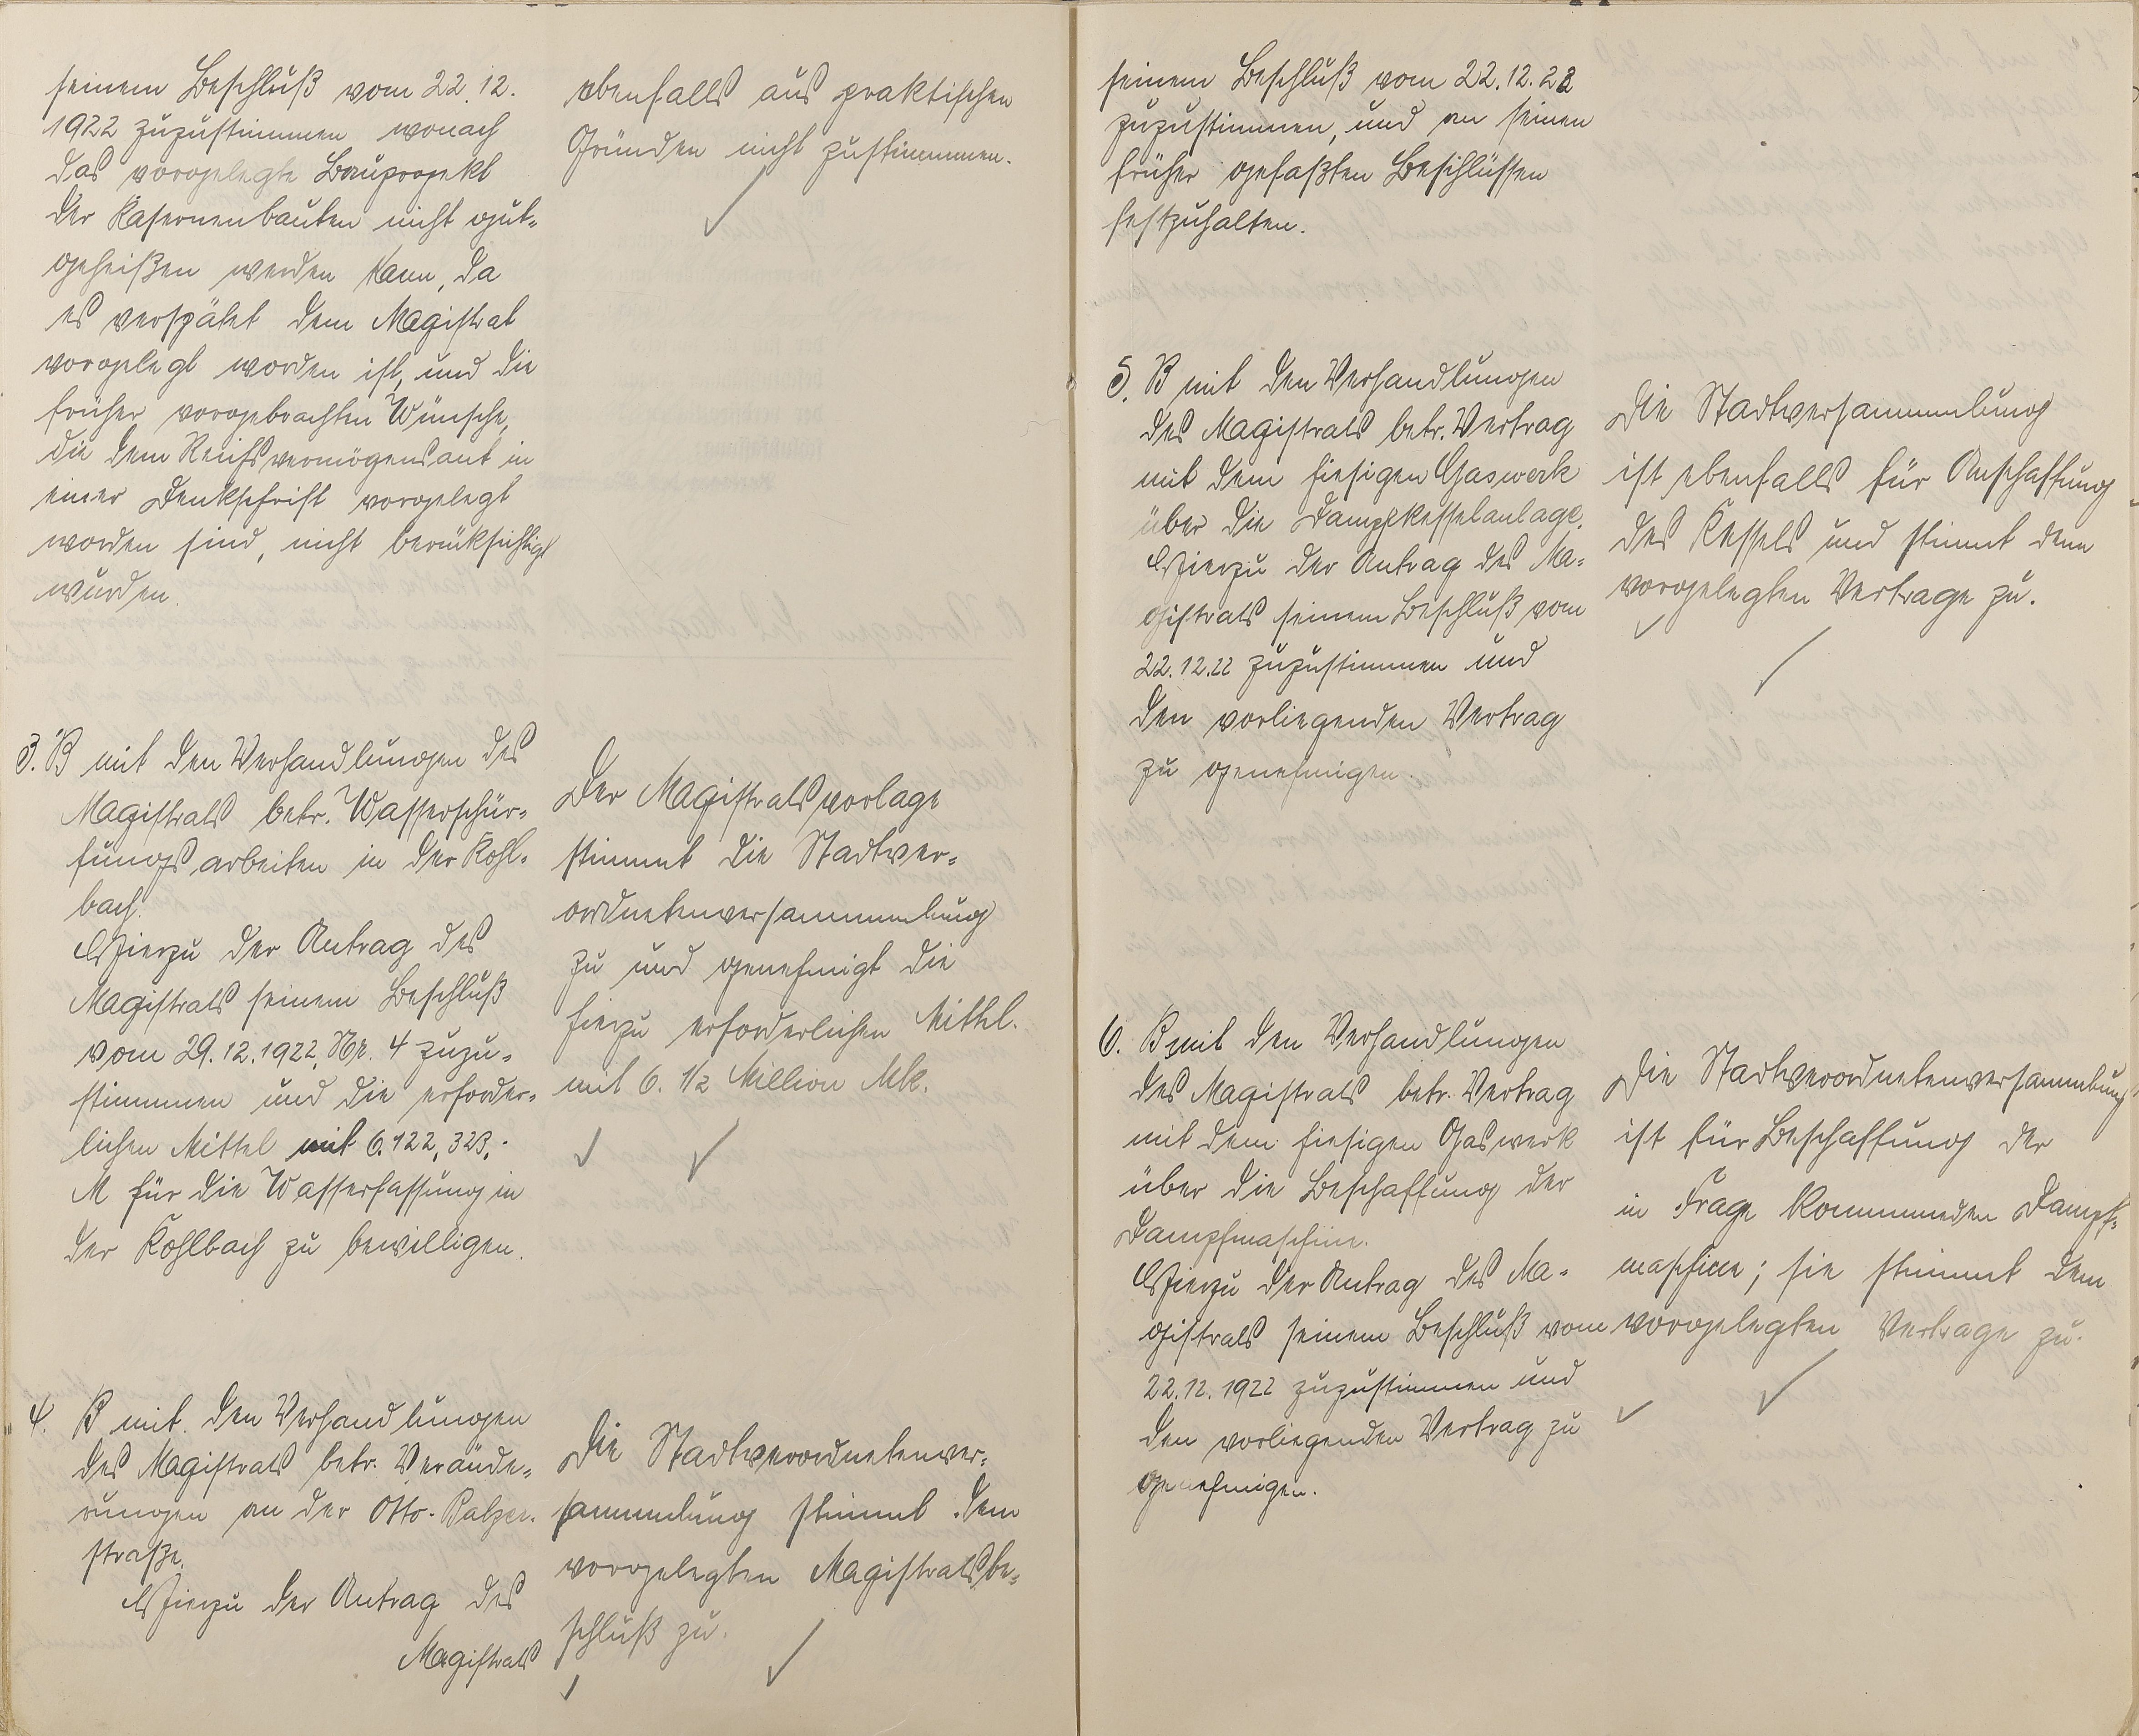 seinem Beschluß vom 22.12.
1922 zuzustimmen wonach
das vorgelegte Bauprojekt
der Kasernenbauten nicht gut-
geheißen werden kann, da
es verspätet dem Magistrat
vorgelegt worden ist, und die
früher vorgebrachten Wünsche,
die dem Reichsvermögensamt in
einer Denkschrift vorgelegt
worden sind, nicht berücksichtigt
wurden.
ebenfalls aus praktischen
Gründen nicht zustimmen.
3. B mit den Verhandlungen des
Magistrats betr. Wasserschür-
fungsarbeiten in der Kohl-
bach.
Hierzu der Antrag des
Magistrats seinem Beschluß
vom 29.12.1922, Nr. 4 zuzu-
stimmen und die erforder-
lichen Mittel mit 6.122,323,-
M für die Wasserfassung in
der Kohlbach zu bewilligen.
Der Magistratsvorlage
stimmt die Stadtver-
ordnetenversammlung
zu und genehmigt die
hierzu erforderlichen Mittel.
mit 6. 1/2 Million Mk.
4. B mit den Verhandlungen
des Magistrats betr. Verände-
rungen an der Otto-Balzer-
straße.
Hierzu der Antrag des
Magistrats
Die Stadtverordnetenver-
sammlung stimmt dem
vorgelegten Magistratsbe-
schluß zu.
seinem Beschluß vom 22.12.22
zuzustimmen, und an seinen
früher gefaßten Beschlüssen
festzuhalten.
5. B mit den Verhandlungen
des Magistrats betr. Vertrag
mit dem hiesigen Gaswerk
über die Dampfkesselanlage.
Hierzu der Antrag des Ma-
gistrats seinem Beschluß vom
22.12.22 zuzustimmen und
den vorliegenden Vertrag
zu genehmigen.
Die Stadtversammlung
ist ebenfalls für Anschaffung
des Kessels und stimmt dem
vorgelegten Vertrage zu.
6. B mit den Verhandlungen
des Magistrats betr. Vertrag
mit dem hiesigen Gaswerk
über die Beschaffung der
Dampfmaschine.
Hierzu der Antrag des Ma-
gistrats seinem Beschluß vom
22.12.1922 zuzustimmen und
den vorliegenden Vertrag zu
genehmigen.
Die Stadtverordnetenversammlung
ist für Beschaffung der
in Frage kommmeden Dampf-
maschine; sie stimmt dem
vorgelegten Vertrage zu.